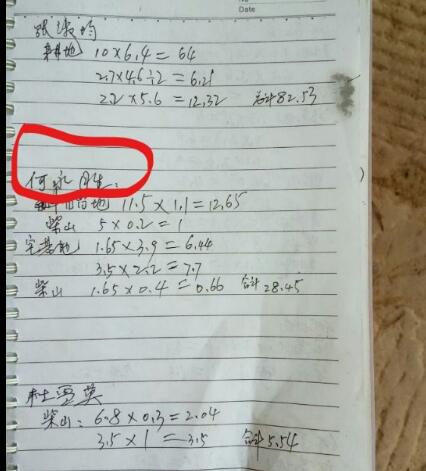 No
Date
张淑均
耕地 10×6.4=64
2.7×4.6÷2=6.21
2.2×5.6=12.32 合计82.53
何永
地 11.5×1.1=12.65
柴山 5×0.2=1
宅基地 1.65×3.9=6.44
3.5×2.2=7.7
柴山 1.65×0.4=0.66 合计28.45
杜 英
柴山：6.8×0.3=2.04
3.5×1=3.5 合计5.54